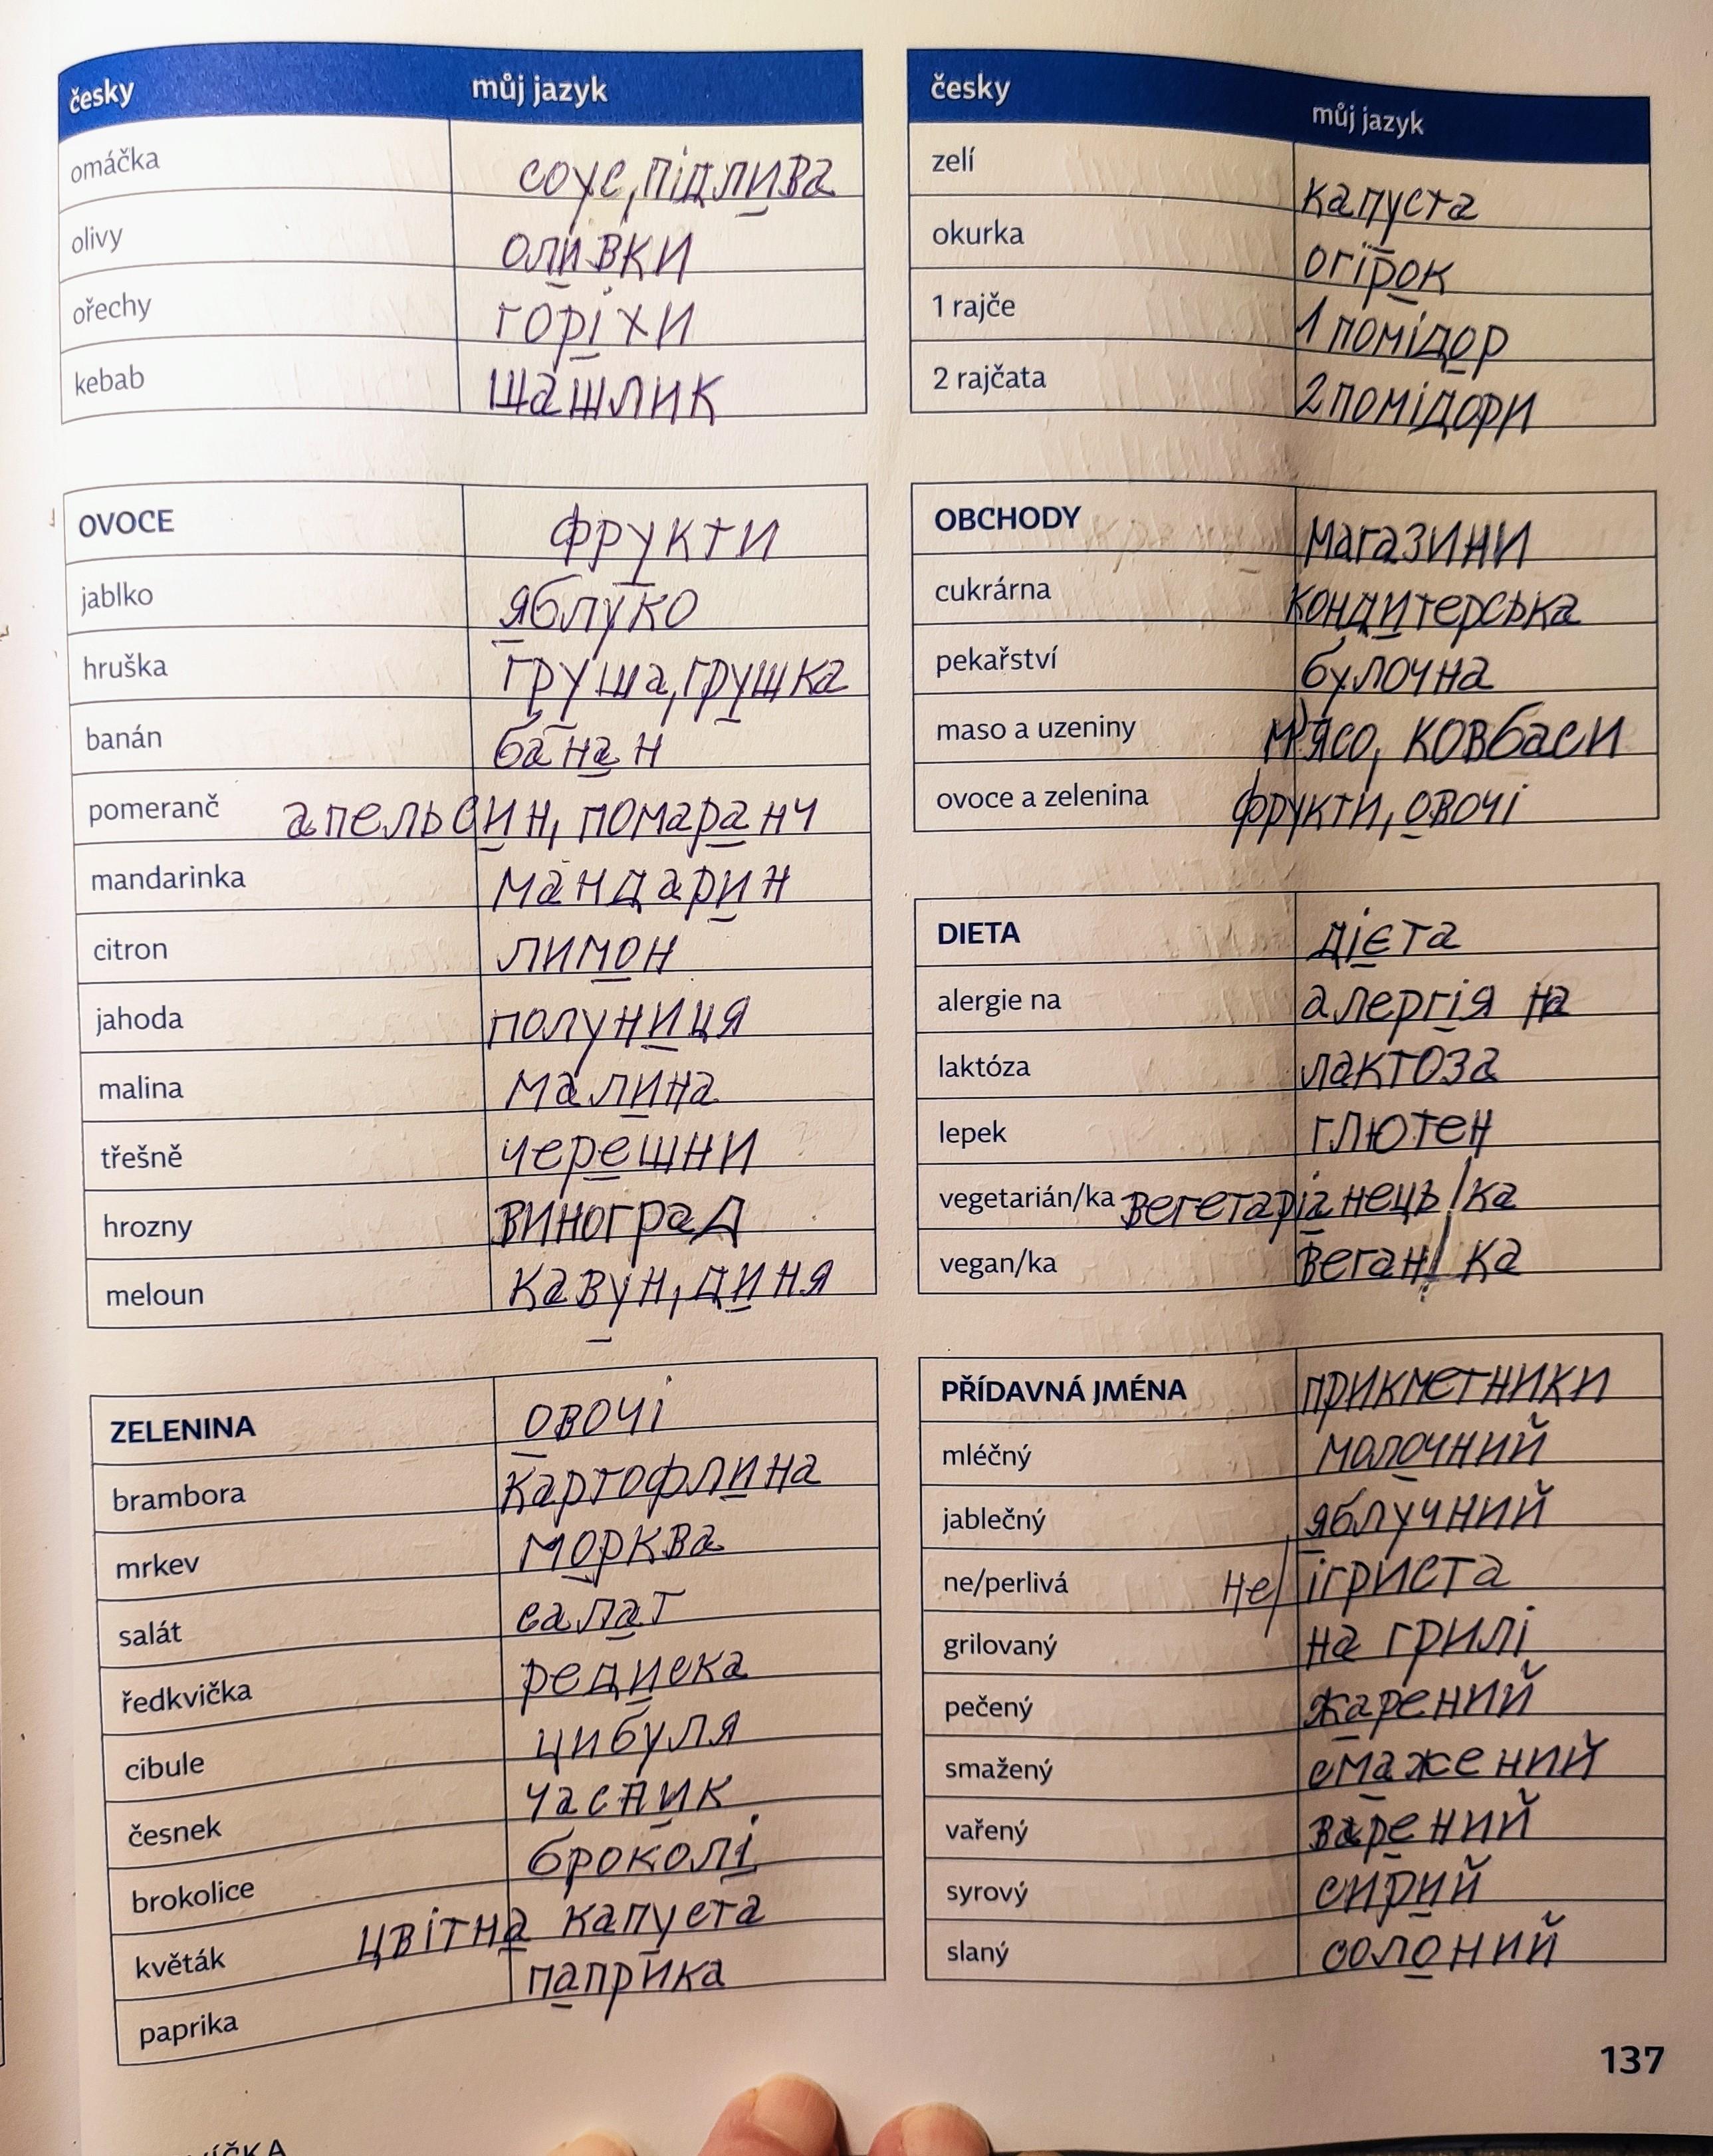 česky můj jazyk
omáčka соус, підлива
olivy оливки
ořechy горіхи
kebab шашлик
OVOCE фрукти
jablko яблуко
hruška груша, грушка
banán банан
pomeranč апельсин, помаранч
mandarinka мандарин
citron лимон
jahoda полуниця
malina малина
třešně черешни
hrozny виноград
meloun кавун, диня
ZELENINA овочі
brambora картофлина
mrkev морква
salát салат
ředkvička редиска
cibule цибуля
česnek часник
brokolice броколі
květák цвітна капуста
paprika паприка
česky můj jazyk
zelí капуста
okurka огірок
1 rajče 1 помідор
2 rajčata 2 помідори
OBCHODY магазини
cukrárna кондитерська
pekařství булочна
maso a uzeniny м'ясо, ковбаси
ovoce a zelenina фрукти, овочі
DIETA дієта
alergie na алергія на
laktóza лактоза
lepek глютен
vegetarián/ka вегетаріанець/ка
vegan/ka веган/ка
PŘÍDAVNÁ JMÉNA прикметники
mléčný молочний
jablečný яблучний
ne/perlivá не/ігриста
grilovaný на грилі
pečený жарений
smažený смажений
vařený варений
syrový сирий
slaný солоний
137